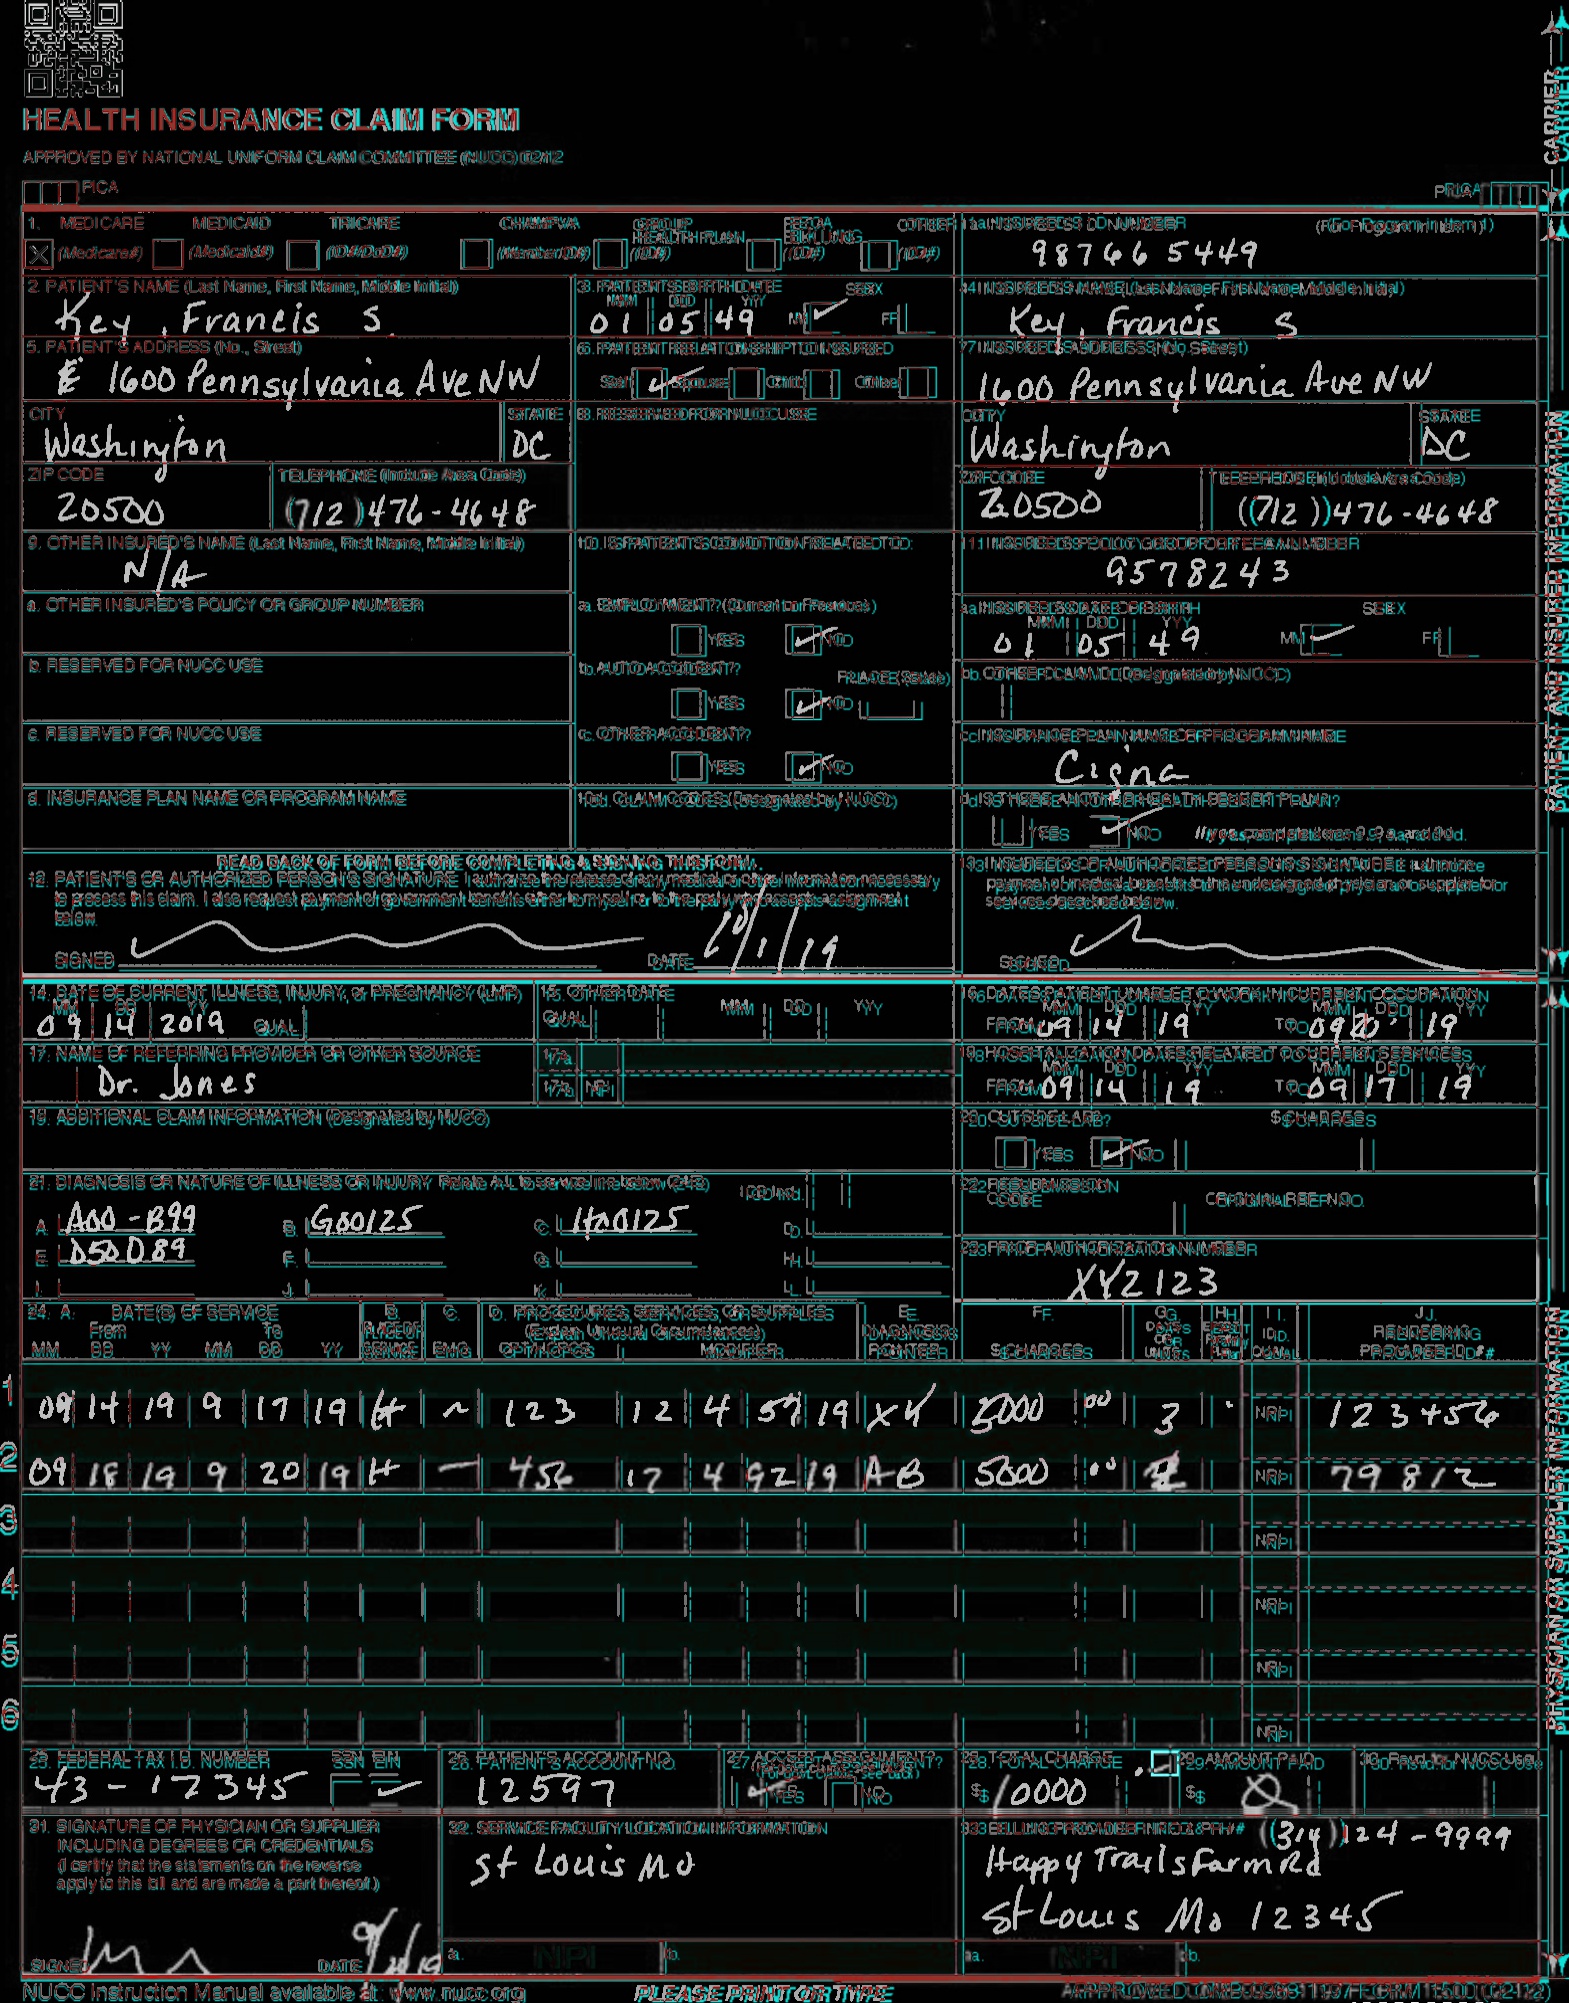 HEALTH INSURANCE CLAIM FORM
APPROVED BY NATIONAL UNIFORM CLAIM COMMITTEE (NUCC) 02/12
PICA
PICA
CARRIER
1. MEDICARE MEDICAID TRICARE CHAMPVA GROUP HEALTH PLAN FECA BLK LUNG OTHER
X (Medicare#) (Medicaid#) (ID#/DoD#) (Member ID#) (ID#) (ID#) (ID#)
1a. INSURED'S I.D. NUMBER (For Program in Item 1)
98766 5449
2. PATIENT'S NAME (Last Name, First Name, Middle Initial)
Key, Francis S.
3. PATIENT'S BIRTH DATE SEX
MM DD YY
01 05 49 M F
4. INSURED'S NAME (Last Name, First Name, Middle Initial)
Key, Francis S
5. PATIENT'S ADDRESS (No., Street)
1600 Pennsylvania Ave NW
6. PATIENT RELATIONSHIP TO INSURED
Self Spouse Child Other
7. INSURED'S ADDRESS (No., Street)
1600 Pennsylvania Ave NW
CITY STATE
Washington DC
8. RESERVED FOR NUCC USE
CITY STATE
Washington DC
ZIP CODE TELEPHONE (Include Area Code)
20500 (712) 476-4648
ZIP CODE TELEPHONE (Include Area Code)
20500 (712) 476-4648
9. OTHER INSURED'S NAME (Last Name, First Name, Middle Initial)
N/A
10. IS PATIENT'S CONDITION RELATED TO:
11. INSURED'S POLICY GROUP OR FECA NUMBER
9578243
a. OTHER INSURED'S POLICY OR GROUP NUMBER
a. EMPLOYMENT? (Current or Previous)
YES NO
a. INSURED'S DATE OF BIRTH SEX
MM DD YY
01 05 49 M F
b. RESERVED FOR NUCC USE
b. AUTO ACCIDENT? PLACE (State)
YES NO
b. OTHER CLAIM ID (Designated by NUCC)
c. RESERVED FOR NUCC USE
c. OTHER ACCIDENT?
YES NO
c. INSURANCE PLAN NAME OR PROGRAM NAME
Cigna
d. INSURANCE PLAN NAME OR PROGRAM NAME
10d. CLAIM CODES (Designated by NUCC)
d. IS THERE ANOTHER HEALTH BENEFIT PLAN?
YES NO If yes, complete items 9, 9a, and 9d.
PATIENT AND INSURED INFORMATION
READ BACK OF FORM BEFORE COMPLETING & SIGNING THIS FORM.
12. PATIENT'S OR AUTHORIZED PERSON'S SIGNATURE I authorize the release of any medical or other information necessary
to process this claim. I also request payment of government benefits either to myself or to the party who accepts assignment
below.
SIGNED DATE 10/1/19
13. INSURED'S OR AUTHORIZED PERSON'S SIGNATURE I authorize
payment of medical benefits to the undersigned physician or supplier for
services described below.
SIGNED
14. DATE OF CURRENT ILLNESS, INJURY, or PREGNANCY (LMP)
MM DD YY
09 14 2019 QUAL.
15. OTHER DATE
QUAL. MM DD YY
16. DATES PATIENT UNABLE TO WORK IN CURRENT OCCUPATION
MM DD YY MM DD YY
FROM 09 14 19 TO 09 19
17. NAME OF REFERRING PROVIDER OR OTHER SOURCE
Dr. Jones
17a.
17b. NPI
18. HOSPITALIZATION DATES RELATED TO CURRENT SERVICES
MM DD YY MM DD YY
FROM 09 14 19 TO 09 17 19
19. ADDITIONAL CLAIM INFORMATION (Designated by NUCC)
20. OUTSIDE LAB? $ CHARGES
YES NO
21. DIAGNOSIS OR NATURE OF ILLNESS OR INJURY Relate A-L to service line below (24E) ICD Ind.
A. A00-B99 B. G00125 C. H00125 D.
E. D50D89 F. G. H.
I. J. K. L.
22. RESUBMISSION CODE ORIGINAL REF. NO.
23. PRIOR AUTHORIZATION NUMBER
XYZ123
24. A. DATE(S) OF SERVICE B. C. D. PROCEDURES, SERVICES, OR SUPPLIES E. F. G. H. I. J.
From To PLACE OF (Explain Unusual Circumstances) DIAGNOSIS DAYS OR ID. RENDERING
MM DD YY MM DD YY SERVICE EMG CPT/HCPCS MODIFIER POINTER $ CHARGES UNITS QUAL. PROVIDER ID. #
1 09 14 19 9 17 19 H ~ 123 12 4 57 19 XY 5000 00 3 NPI 123456
2 09 18 19 9 20 19 H — 456 17 4 92 19 AB 5000 00 NPI 79812
3 NPI
4 NPI
5 NPI
6 NPI
PHYSICIAN OR SUPPLIER INFORMATION
25. FEDERAL TAX I.D. NUMBER SSN EIN
43-12345
26. PATIENT'S ACCOUNT NO.
12597
27. ACCEPT ASSIGNMENT?
(For govt. claims, see back)
YES NO
28. TOTAL CHARGE
$ 10000
29. AMOUNT PAID
$ 0
30. Rsvd for NUCC Use
31. SIGNATURE OF PHYSICIAN OR SUPPLIER
INCLUDING DEGREES OR CREDENTIALS
(I certify that the statements on the reverse
apply to this bill and are made a part thereof.)
SIGNED DATE
32. SERVICE FACILITY LOCATION INFORMATION
St Louis Mo
a. NPI b.
33. BILLING PROVIDER INFO & PH # (314) 124-9999
Happy Trails Farm Rd
St Louis Mo 12345
a. NPI b.
NUCC Instruction Manual available at: www.nucc.org
PLEASE PRINT OR TYPE
APPROVED OMB-0938-1197 FORM 1500 (02-12)